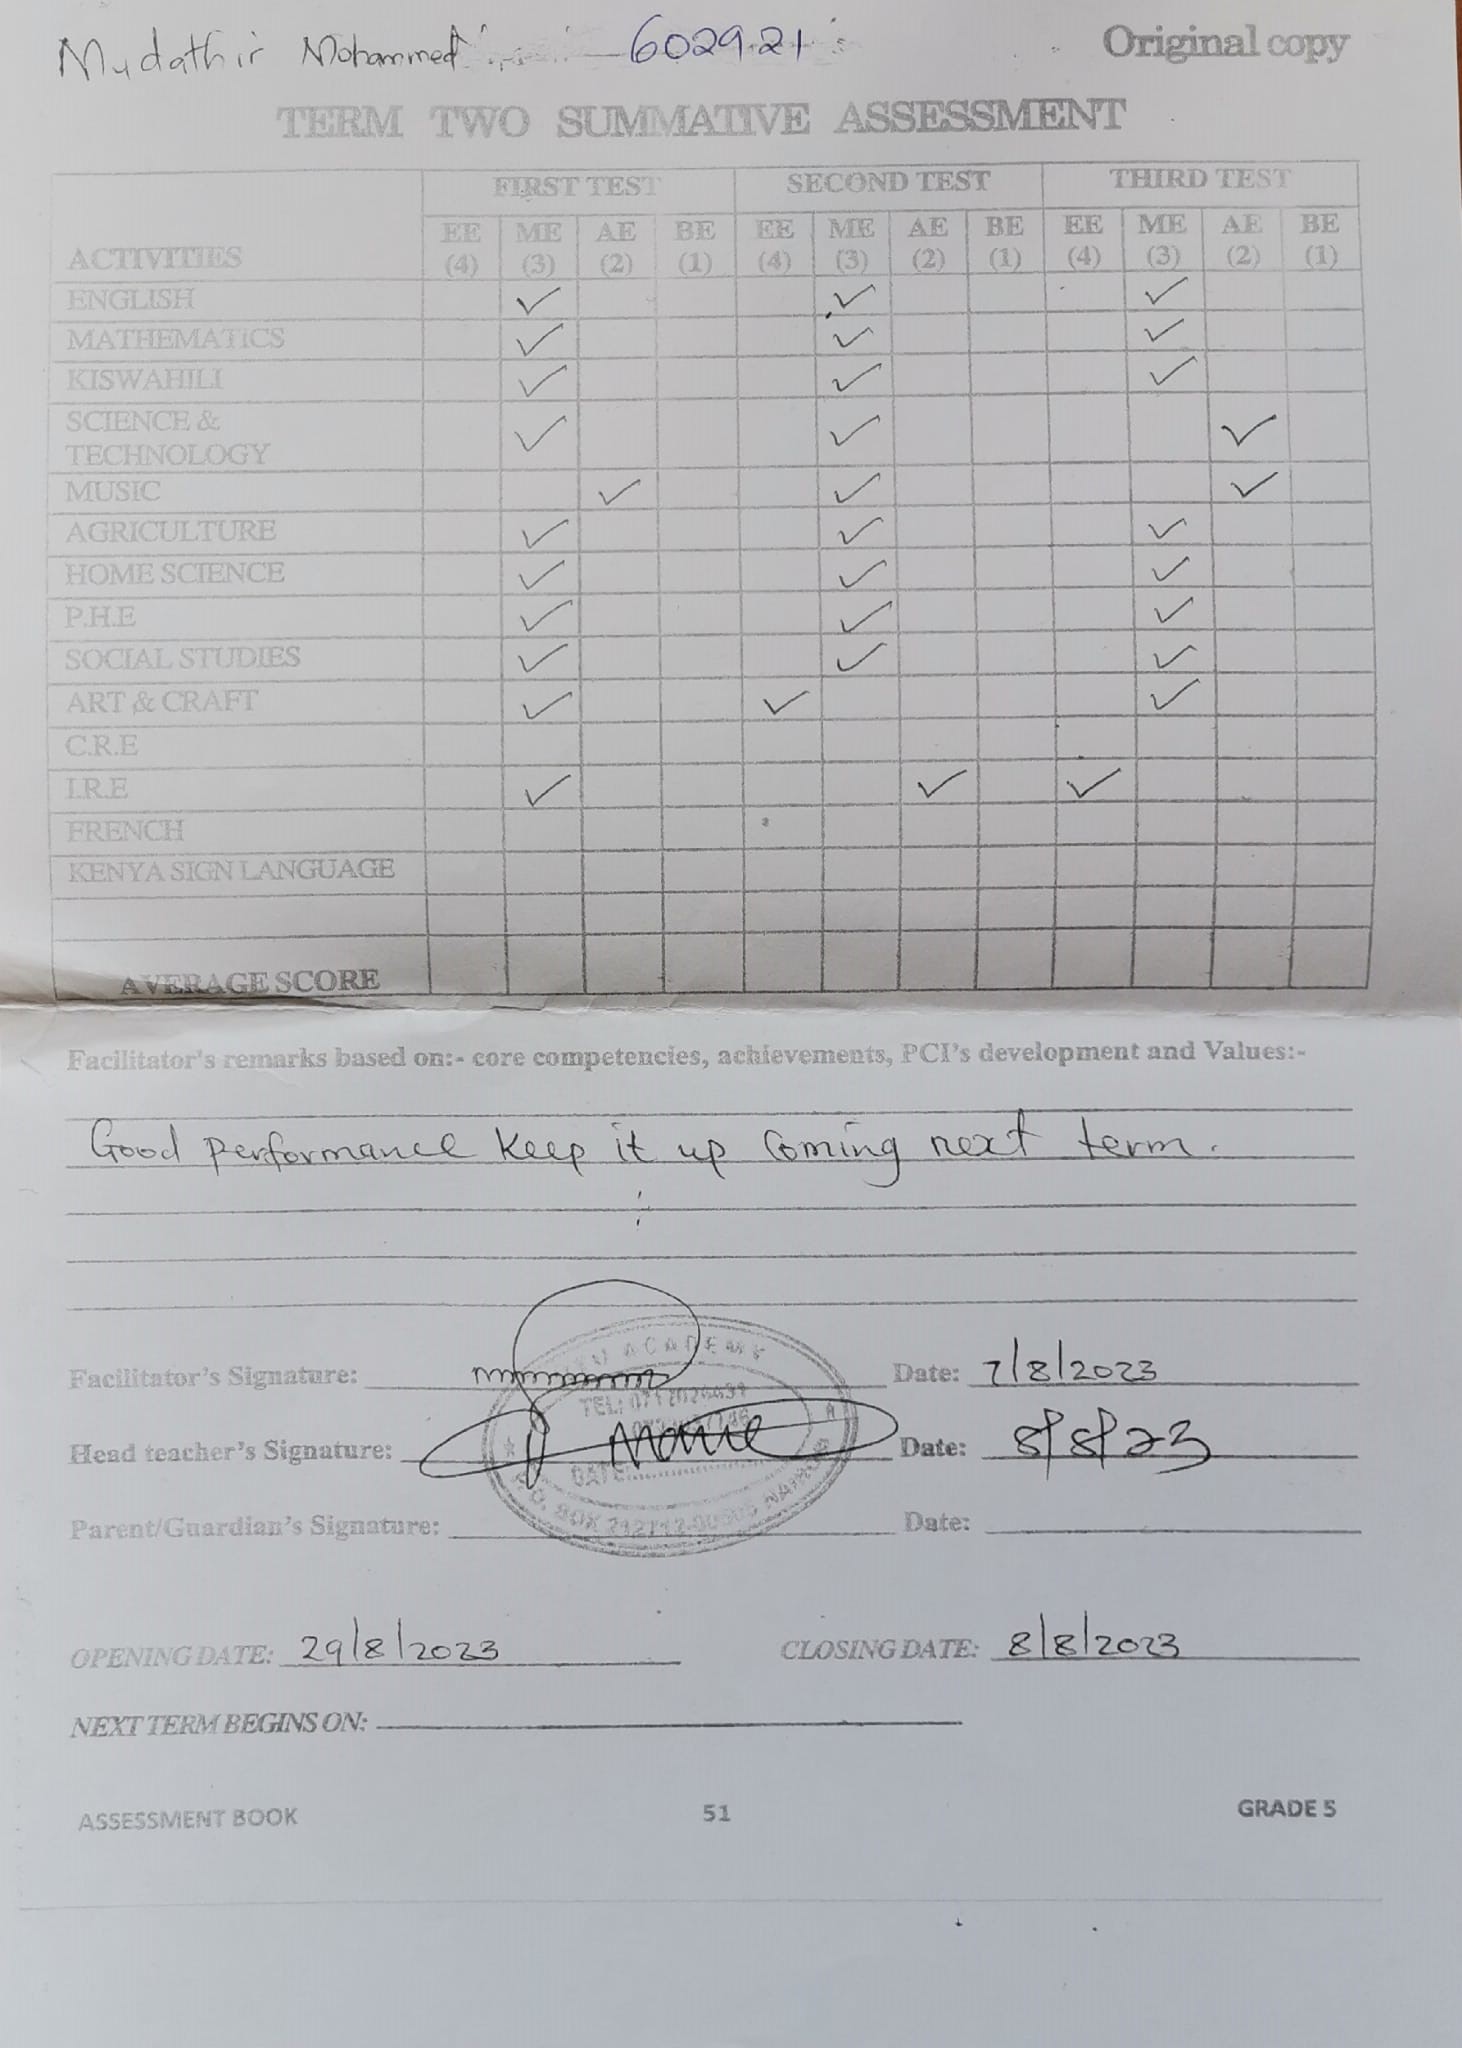 Mudathir Mohammed 602921
Original copy
TERM TWO SUMMATIVE ASSESSMENT
ACTIVITIES FIRST TEST SECOND TEST THIRD TEST
EE ME AE BE EE ME AE BE EE ME AE BE
(4) (3) (2) (1) (4) (3) (2) (1) (4) (3) (2) (1)
ENGLISH ✓ ✓ ✓
MATHEMATICS ✓ ✓ ✓
KISWAHILI ✓ ✓ ✓
SCIENCE &
TECHNOLOGY ✓ ✓ ✓
MUSIC ✓ ✓ ✓
AGRICULTURE ✓ ✓ ✓
HOME SCIENCE ✓ ✓ ✓
P.H.E ✓ ✓ ✓
SOCIAL STUDIES ✓ ✓ ✓
ART & CRAFT ✓ ✓ ✓
C.R.E
I.R.E ✓ ✓ ✓
FRENCH
KENYA SIGN LANGUAGE
AVERAGE SCORE
Facilitator's remarks based on:- core competencies, achievements, PCI's development and Values:-
Good performance keep it up coming next term.
Facilitator's Signature: Date: 7/8/2023
ACADEMY
TEL:
Head teacher's Signature: Date: 8/8/23
DATE:
P.O. BOX
Parent/Guardian's Signature: Date:
OPENING DATE: 29/8/2023 CLOSING DATE: 8/8/2023
NEXT TERM BEGINS ON:
ASSESSMENT BOOK 51 GRADE 5